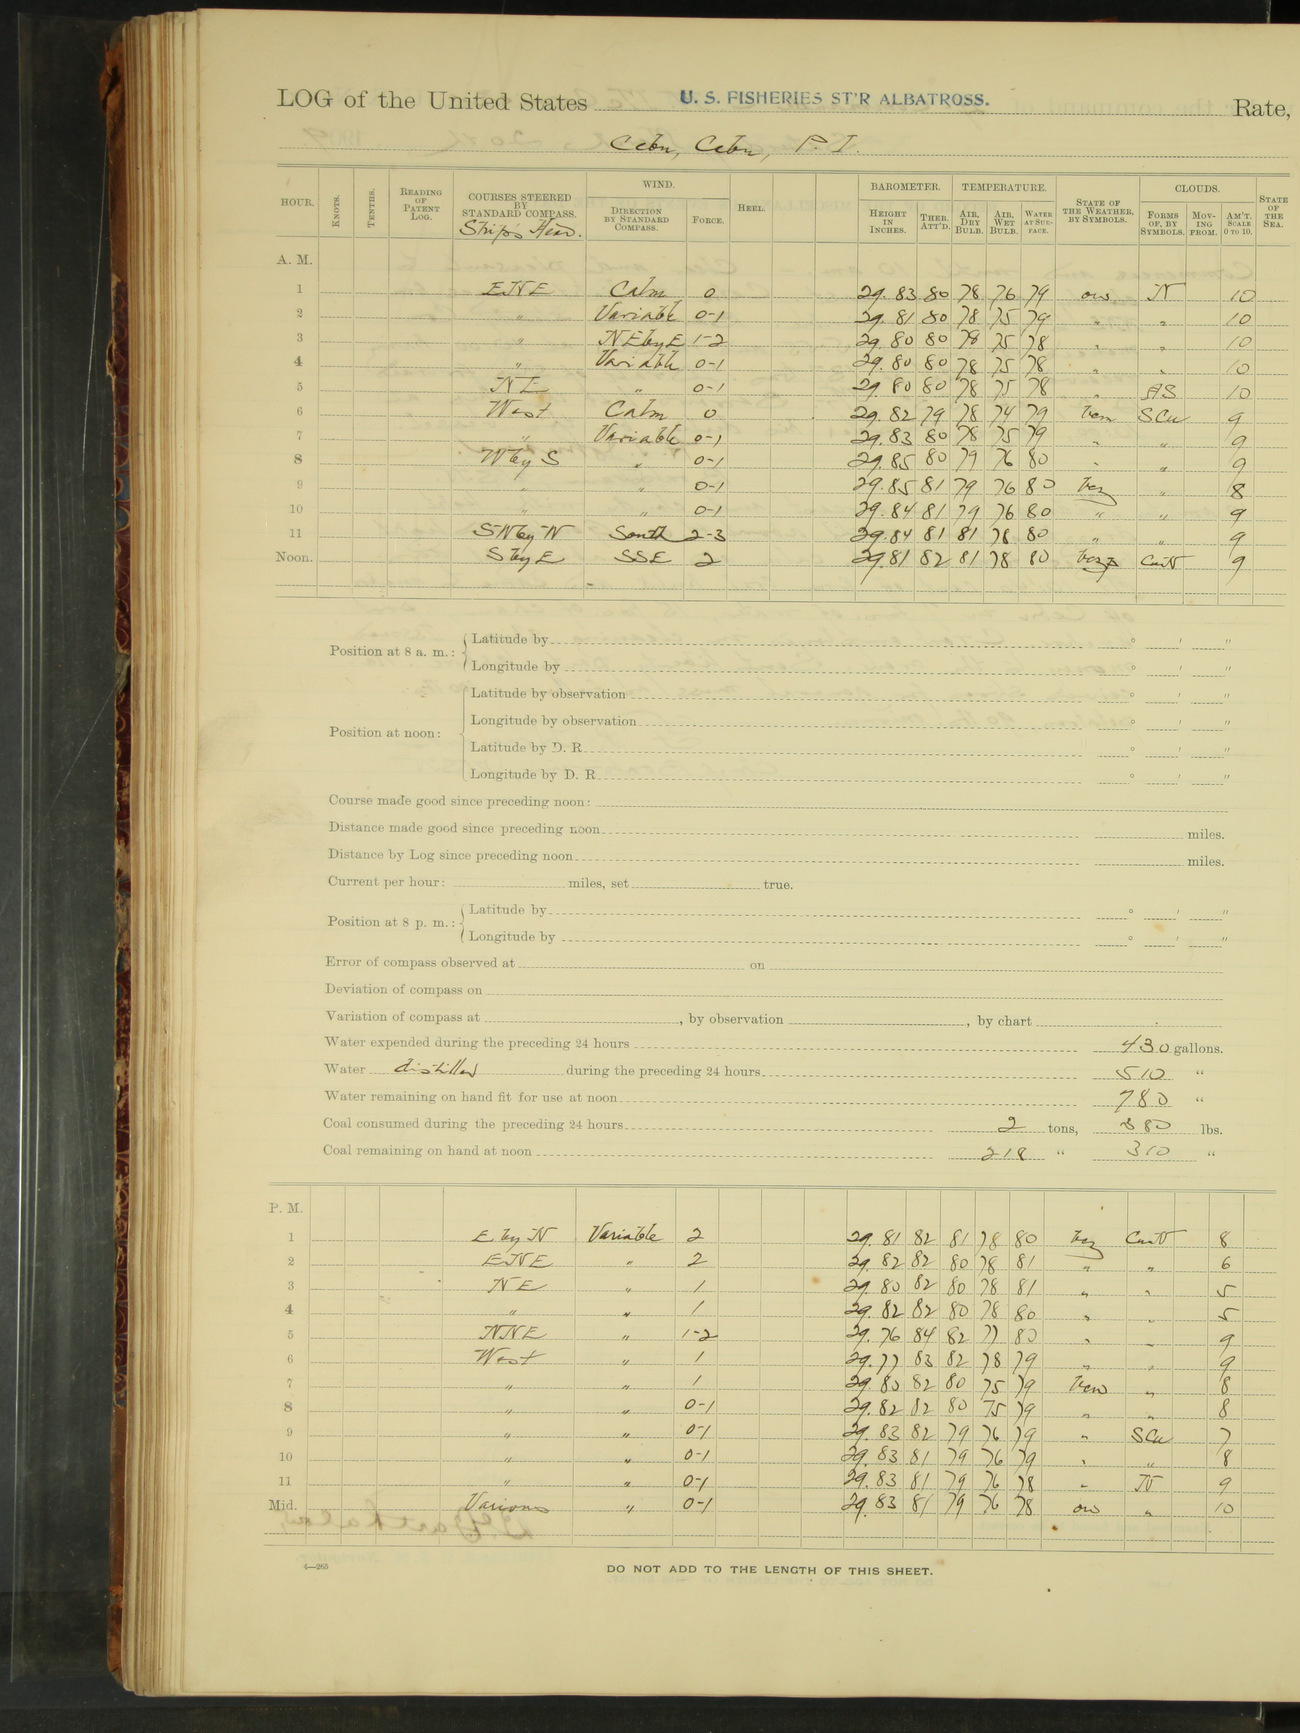 LOG of the United States U. S. FISHERIES ST'R ALBATROSS. Rate,
Cebu, Cebu, P. I.
HOUR. KNOTS. TENTHS. READING OF PATENT LOG. COURSES STEERED BY STANDARD COMPASS. Ship's Head. WIND. DIRECTION BY STANDARD COMPASS. FORCE. HEEL. BAROMETER. HEIGHT IN INCHES. THER. ATT'D. TEMPERATURE. AIR, DRY BULB. AIR, WET BULB. WATER AT SURFACE. STATE OF THE WEATHER, BY SYMBOLS. CLOUDS. FORMS OF, BY SYMBOLS. MOVING FROM. AM'T. SCALE 0 TO 10. STATE OF THE SEA.
A. M.
1 ENE Calm 0 29.83 80 78 76 79 N 10
2 " Variable 0-1 29.81 80 78 75 79 " " 10
3 " NEbyE 1-2 29.80 80 78 75 78 " " 10
4 " Variable 0-1 29.80 80 78 75 78 " " 10
5 NE " 0-1 29.80 80 78 75 78 " AS 10
6 West Calm 0 29.82 79 78 74 79 SCu 9
7 " Variable 0-1 29.83 80 78 75 79 " " 9
8 WbyS " 0-1 29.85 80 79 76 80 " " 9
9 " " 0-1 29.85 81 79 76 80 " 8
10 " " 0-1 29.84 81 79 76 80 " " 9
11 SWbyW South 2-3 29.84 81 81 78 80 " " 9
Noon. SbyE SSE 2 29.81 82 81 78 80 CuN 9
Position at 8 a. m.: Latitude by ° ' "
Longitude by ° ' "
Position at noon: Latitude by observation ° ' "
Longitude by observation ° ' "
Latitude by D. R. ° ' "
Longitude by D. R. ° ' "
Course made good since preceding noon:
Distance made good since preceding noon miles.
Distance by Log since preceding noon miles.
Current per hour: miles, set true.
Position at 8 p. m.: Latitude by ° ' "
Longitude by ° ' "
Error of compass observed at on
Deviation of compass on
Variation of compass at , by observation , by chart
Water expended during the preceding 24 hours 430 gallons.
Water distilled during the preceding 24 hours 510 "
Water remaining on hand fit for use at noon 780 "
Coal consumed during the preceding 24 hours 2 tons, lbs.
Coal remaining on hand at noon 218 " 310 "
P. M.
1 E by N Variable 2 29.81 82 81 78 80 CuN 8
2 ENE " 2 29.82 82 80 78 81 " " 6
3 NE " 1 29.80 82 80 78 81 " " 5
4 " " 1 29.82 82 80 78 80 " " 5
5 NNE " 1-2 29.76 84 82 77 80 " " 9
6 West " 1 29.77 83 82 78 79 " " 9
7 " " 1 29.80 82 80 75 79 " 8
8 " " 0-1 29.82 82 80 75 79 " " 8
9 " " 0-1 29.83 82 79 76 79 " SCu 7
10 " " 0-1 29.83 81 79 76 79 " " 8
11 " " 0-1 29.83 81 79 76 78 " N 9
Mid. Various " 0-1 29.83 81 79 76 78 " 10
4—265
DO NOT ADD TO THE LENGTH OF THIS SHEET.